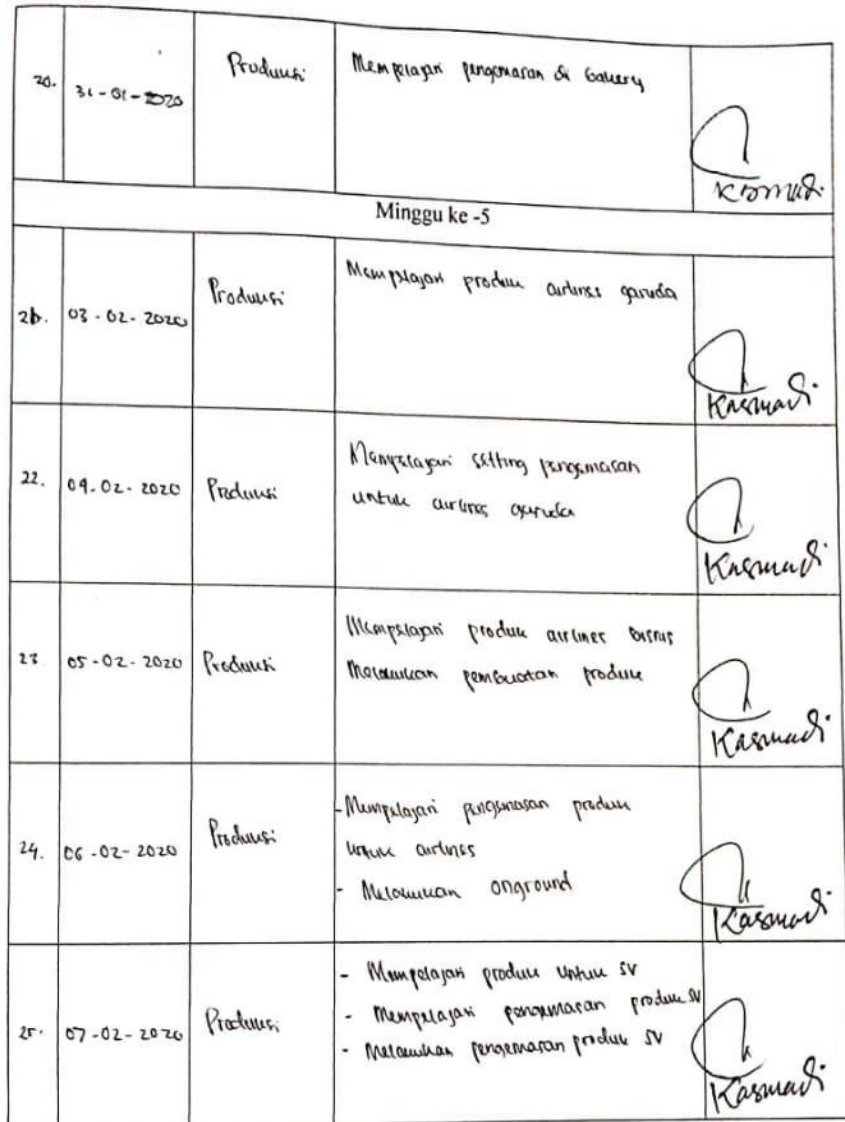 20. 31-01-2020 Produksi Mempelajari pengemasan di bakery
Kasmadi
Minggu ke -5
21. 03-02-2020 Produksi Mempelajari produk airlines garuda
Kasmadi
22. 04-02-2020 Produksi Mempelajari setting pengemasan
untuk airlines garuda
Kasmadi
23. 05-02-2020 Produksi Mempelajari produk airlines bisnis
Melakukan pembuatan produk
Kasmadi
24. 06-02-2020 Produksi - Mempelajari pengemasan produk
untuk airlines
- Melakukan onground
Kasmadi
25. 07-02-2020 Produksi - Mempelajari produk untuk SV
- Mempelajari pengemasan produk SV
- Melakukan pengemasan produk SV
Kasmadi